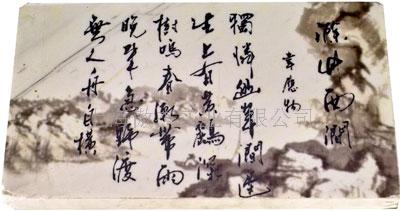 滁州西澗
韋應物
獨憐幽草澗邊
生上有黃鸝深
樹鳴春潮帶雨
晚來急野渡
無人舟自橫